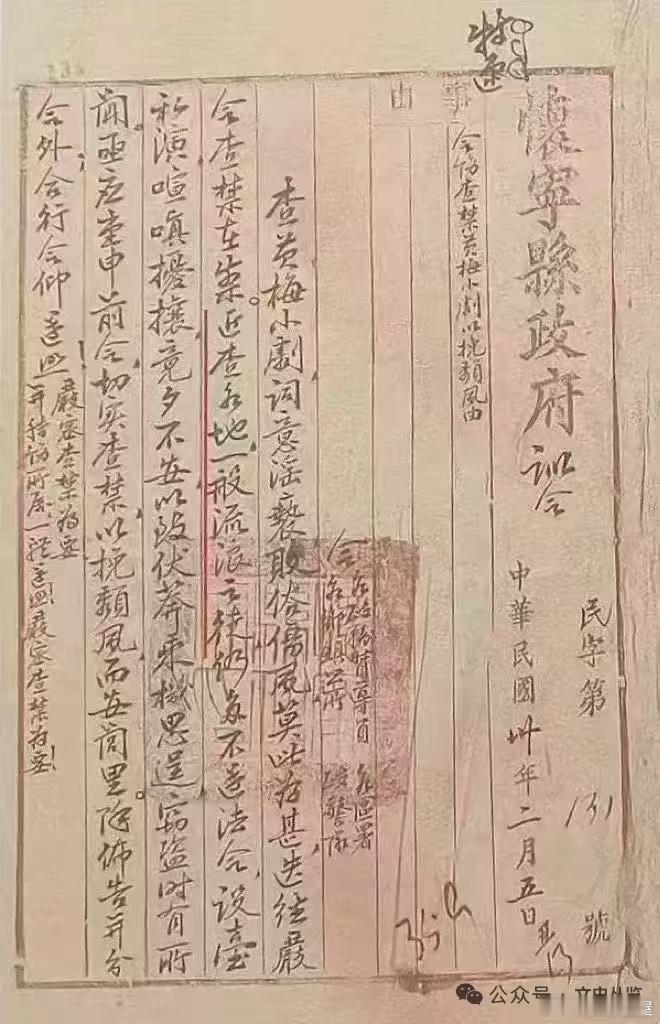 特
速
懷寧縣政府訓令
民字第 131 號
中華民國卅年二月五日
事由
令飭查禁黃梅小劇以挽頹風由
令
各鄉鎮
各區署
警隊
查黃梅小劇詞意淫褻敗俗傷風莫此為甚迭往嚴
令查禁在案。近查各地一般流浪之徒仍多不遵法令,設臺
私演喧嗔擾攘,竟夕不安以致伏莽乘機思逞竊盜時有所
聞亟應重申前令,切实查禁,以挽頹風而安閭里。除佈告并分
令外合行令仰遵照
嚴密查禁為要
并轉飭所屬一體遵照嚴密查禁為要
公众号
文史丛览